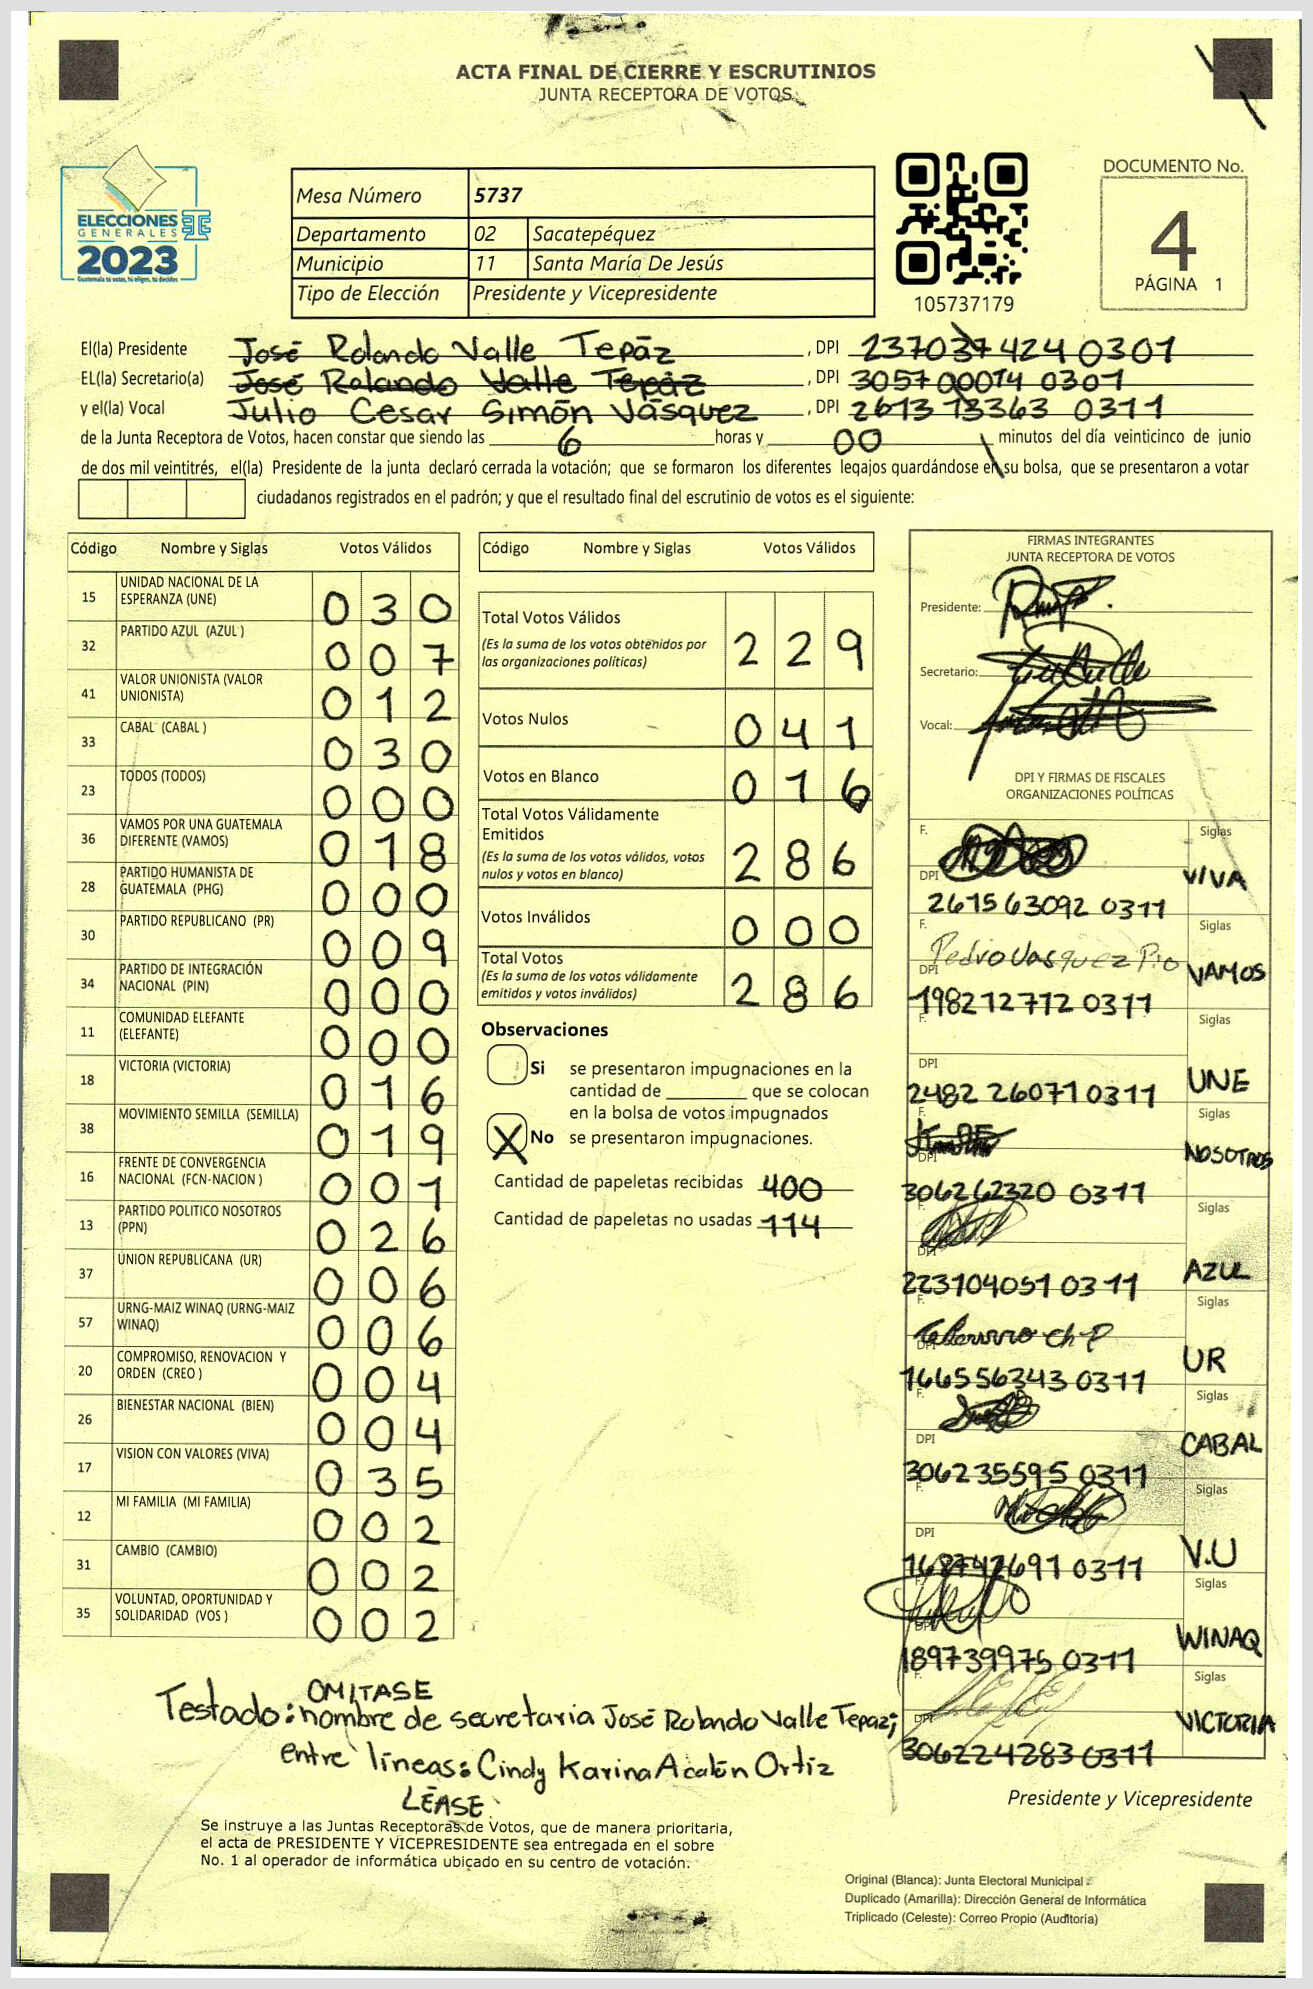 ACTA FINAL DE CIERRE Y ESCRUTINIOS
JUNTA RECEPTORA DE VOTOS
ELECCIONES
GENERALES
2023
Guatemala tú votas, tú eliges, tú decides
Mesa Número 5737
Departamento 02 Sacatepéquez
Municipio 11 Santa María De Jesús
Tipo de Elección Presidente y Vicepresidente
105737179
DOCUMENTO No.
4
PÁGINA 1
El(la) Presidente José Rolando Valle Tepáz , DPI 237037424 0301
EL(la) Secretario(a) José Rolando Valle Tepáz , DPI 305700014 0301
y el(la) Vocal Julio Cesar Simón Vásquez , DPI 2613 13363 0311
de la Junta Receptora de Votos, hacen constar que siendo las 6 horas y 00 minutos del día veinticinco de junio
de dos mil veintitrés, el(la) Presidente de la junta declaró cerrada la votación; que se formaron los diferentes legajos guardándose en su bolsa, que se presentaron a votar
ciudadanos registrados en el padrón; y que el resultado final del escrutinio de votos es el siguiente:
Código Nombre y Siglas Votos Válidos
15 UNIDAD NACIONAL DE LA ESPERANZA (UNE) 030
32 PARTIDO AZUL (AZUL ) 007
41 VALOR UNIONISTA (VALOR UNIONISTA) 012
33 CABAL (CABAL ) 030
23 TODOS (TODOS) 000
36 VAMOS POR UNA GUATEMALA DIFERENTE (VAMOS) 018
28 PARTIDO HUMANISTA DE GUATEMALA (PHG) 000
30 PARTIDO REPUBLICANO (PR) 009
34 PARTIDO DE INTEGRACIÓN NACIONAL (PIN) 000
11 COMUNIDAD ELEFANTE (ELEFANTE) 000
18 VICTORIA (VICTORIA) 016
38 MOVIMIENTO SEMILLA (SEMILLA) 019
16 FRENTE DE CONVERGENCIA NACIONAL (FCN-NACION ) 001
13 PARTIDO POLITICO NOSOTROS (PPN) 026
37 UNION REPUBLICANA (UR) 006
57 URNG-MAIZ WINAQ (URNG-MAIZ WINAQ) 006
20 COMPROMISO, RENOVACION Y ORDEN (CREO ) 004
26 BIENESTAR NACIONAL (BIEN) 004
17 VISION CON VALORES (VIVA) 035
12 MI FAMILIA (MI FAMILIA) 002
31 CAMBIO (CAMBIO) 002
35 VOLUNTAD, OPORTUNIDAD Y SOLIDARIDAD (VOS ) 002
Código Nombre y Siglas Votos Válidos
Total Votos Válidos 229
(Es la suma de los votos obtenidos por
las organizaciones políticas)
Votos Nulos 041
Votos en Blanco 016
Total Votos Válidamente
Emitidos 286
(Es la suma de los votos válidos, votos
nulos y votos en blanco)
Votos Inválidos 000
Total Votos 286
(Es la suma de los votos válidamente
emitidos y votos inválidos)
Observaciones
Si se presentaron impugnaciones en la
cantidad de ________ que se colocan
en la bolsa de votos impugnados
X No se presentaron impugnaciones.
Cantidad de papeletas recibidas 400
Cantidad de papeletas no usadas 114
FIRMAS INTEGRANTES
JUNTA RECEPTORA DE VOTOS
Presidente:
Secretario:
Vocal:
DPI Y FIRMAS DE FISCALES
ORGANIZACIONES POLÍTICAS
F. Siglas
DPI 261563092 0311 VIVA
F. Pedro Vasquez Pio Siglas
DPI 198212712 0311 VAMOS
F. Siglas
DPI 2482 26071 0311 UNE
F. Siglas
DPI 306262320 0311 NOSOTROS
F. Siglas
DPI 223104051 0311 AZUL
F. Siglas
DPI 166556343 0311 UR
F. Siglas
DPI 306235595 0311 CABAL
F. Siglas
DPI 168742691 0311 V.U
F. Siglas
DPI 189739975 0311 WINAQ
F. Siglas
DPI 306224283 0311 VICTORIA
Presidente y Vicepresidente
OMITASE
Testado: nombre de secretaria José Rolando Valle Tepaz;
entre líneas: Cindy Karina Acatón Ortiz
LÉASE
Se instruye a las Juntas Receptoras de Votos, que de manera prioritaria,
el acta de PRESIDENTE Y VICEPRESIDENTE sea entregada en el sobre
No. 1 al operador de informática ubicado en su centro de votación.
Original (Blanca): Junta Electoral Municipal
Duplicado (Amarilla): Dirección General de Informática
Triplicado (Celeste): Correo Propio (Auditoría)